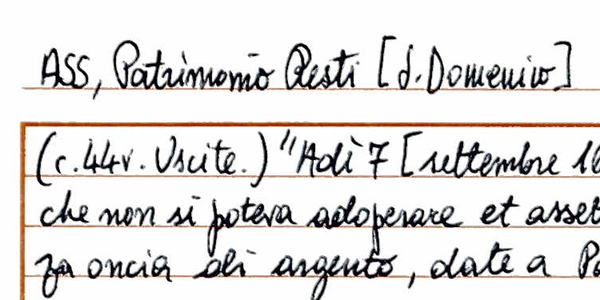 ASS, Patrimonio Resti [d. Domenico]
(c.44v. Uscite.) "Adì 7 [settembre 16
che non si poteva adoperare et asset
za oncia di argento, date a Pa